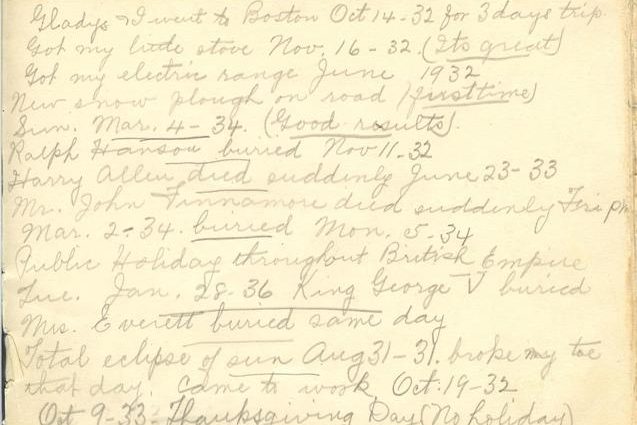 Gladys & I went to Boston Oct 14-32 for 3 days trip.
Got my little stove Nov. 16-32. (Its great)
Got my electric range June 1932
New snow plough on road (first time)
Sun. Mar. 4-34. (Good results).
Ralph Hanson buried Nov 11-32
Harry Allen died suddenly June 23-33
Mr. John Finnamore died suddenly Fri pm
Mar. 2-34. buried Mon. 5-34
Public Holiday throughout British Empire
Tue. Jan. 28-36 King George V buried
Mrs. Everett buried same day
Total eclipse of sun Aug 31-31. broke my toe
that day. Came to work Oct. 19-32
Oct 9-33. Thanksgiving Day (No holiday)